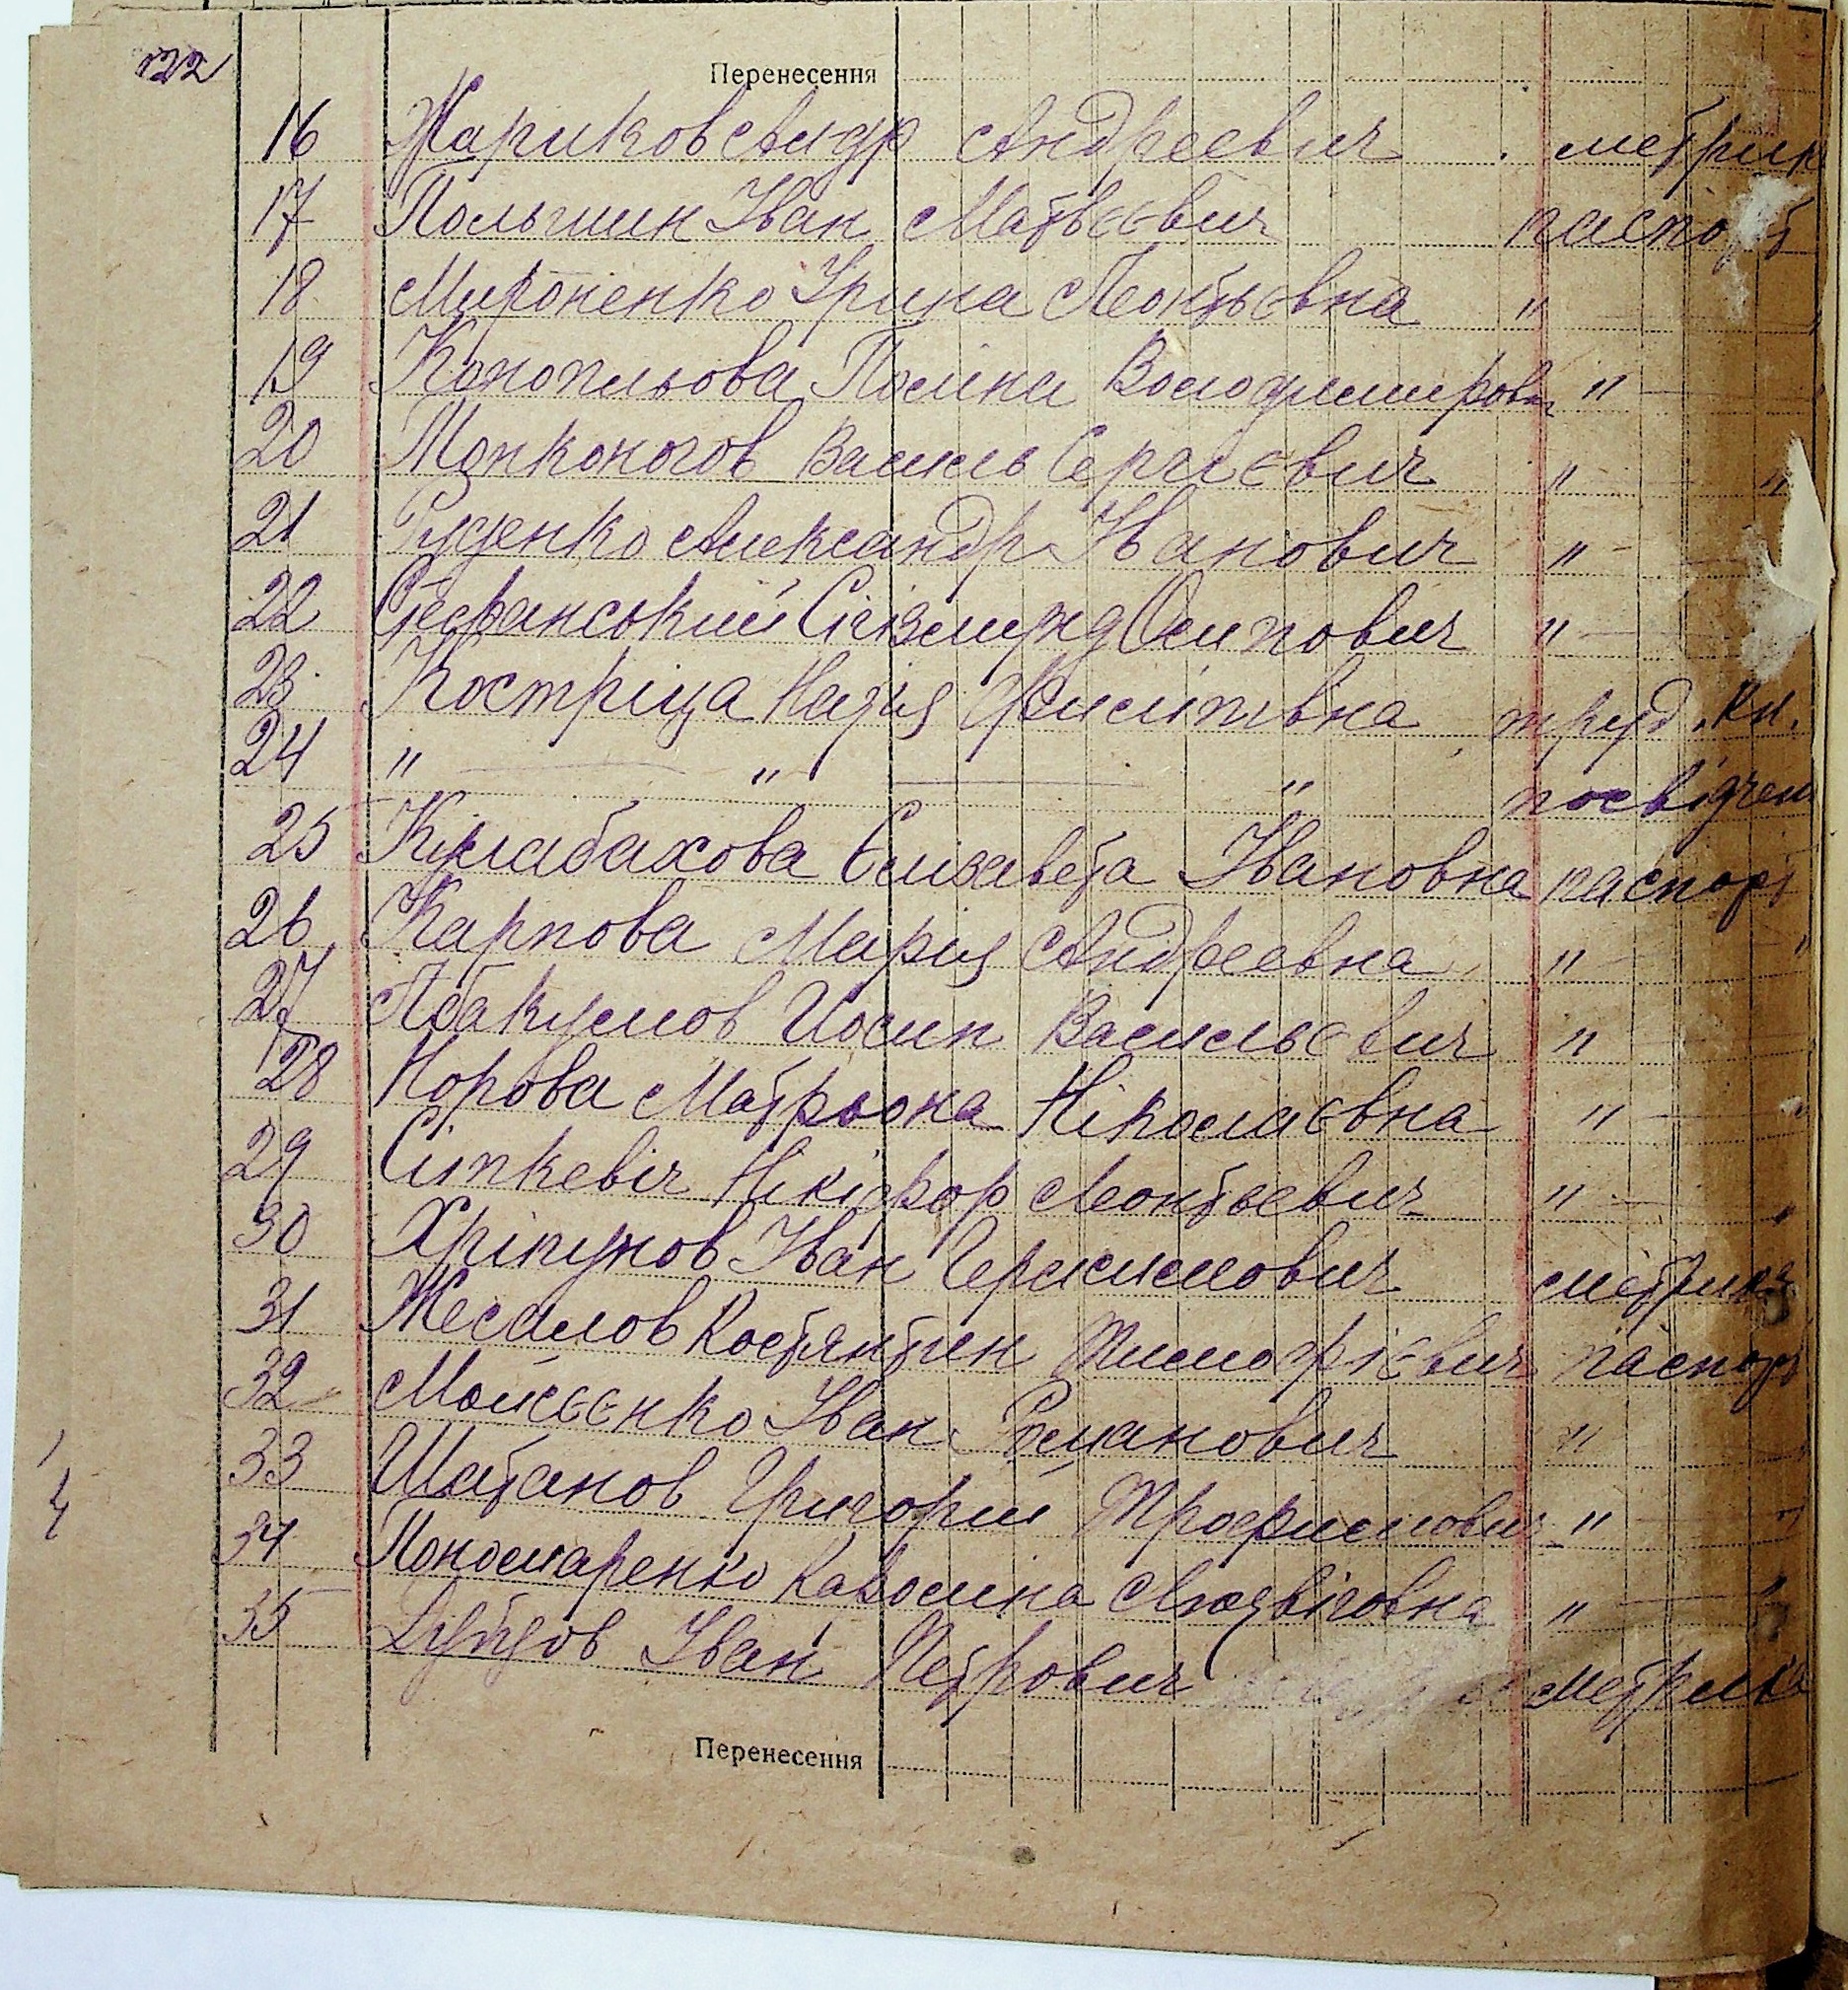 122
Перенесення
16 Жариков Андр Андреевич метрик
17 Польшин Іван Матвєєвич паспорт
18 Мироненко Ірина Леонтьєвна "
19 Конопльова Поліна Володимировн "
20 Мопконогов Василь Сергієвич " "
21 Руденко Александр Іванович "
22 Стефанський Сігізмунд Осипович "
23 Костріца Надія Филипівна труд. кн.
24 " " " посвідчен
25 Єлизавета Івановна паспорт
26 Карпова Марія Андреевна " "
27 Абакумов Иосип Васильєвич "
28 Норова Матрьона Ніколаєвна " "
29 Сіпкевіч Нікіфор Леонтьевич " "
30 Хріпунов Іван Герасимович метрика
31 Жесалов Костянтин Тимофієвич паспорт
32 Моисєєнко Іван Романович "
33 Шатанов Григорий Трофимович " "
34 Пономаренко Каволіна Людвіговна " "
35 Дубцов Іван Петрович метрика
Перенесення